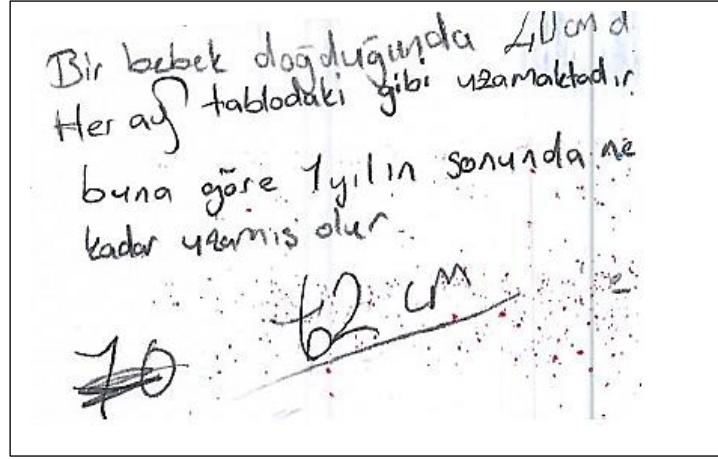 Bir bebek doğduğunda 40 cm d
Her ay tablodaki gibi uzamaktadır
buna göre 1 yılın sonunda ne
kadar uzamış olur.
62 cm
70